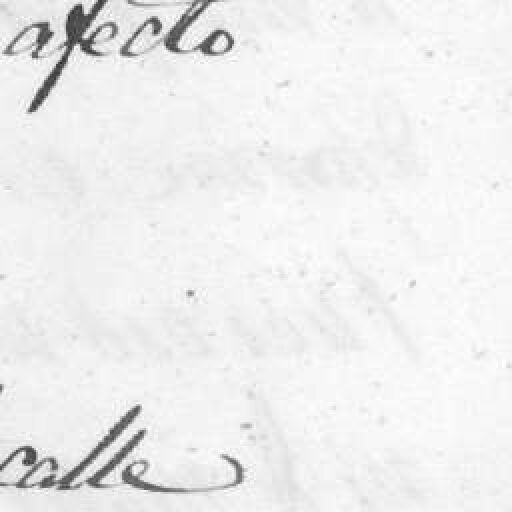 afecto
calle